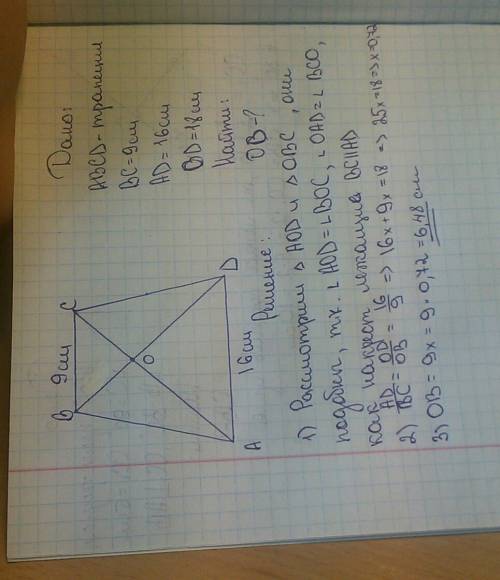 Дано:
ABCD - трапеция
BC = 9 см
AD = 16 см
BD = 18 см
Найти:
OB = ?
B 9 см C
O
A 16 см D
Решение:
1) Рассмотрим △ AOD и △ OBC, они
подобны, т.к. ∠AOD = ∠BOC, ∠OAD = ∠BCO,
как накрест лежащие BC||AD
2) AD/BC = OD/OB = 16/9 => 16x + 9x = 18 => 25x = 18 => x = 0,72
3) OB = 9x = 9 · 0,72 = 6,48 см